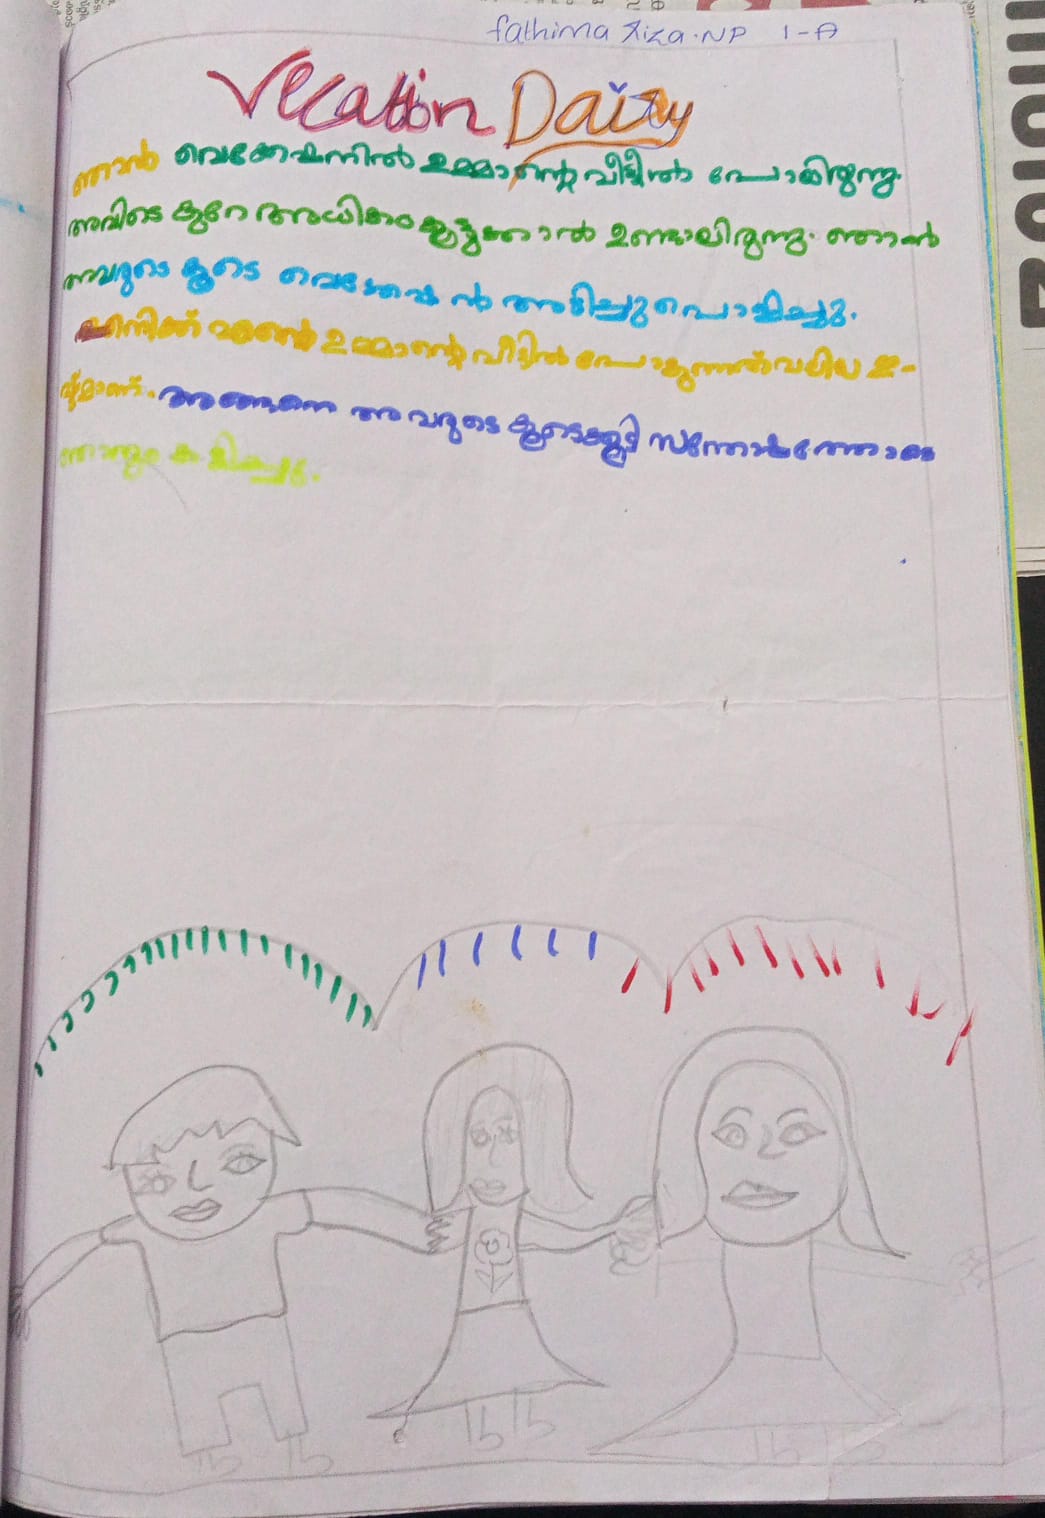 fathima Riza.NP 1-A
Vecation Daizy
ഞാൻ വെക്കേഷനിൽ ഉമ്മാന്റെ വീട്ടിൽ പോയിരുന്നു.
അവിടെ കുറേ അധികം കൂട്ടുക്കാൽ ഉണ്ടാലിരുന്നു. ഞാൻ
അവരുടെ കൂടെ വെക്കേഷൻ അടിച്ചുപൊളിച്ചു.
എനിക്ക് ഉമ്മാന്റെ വീട്ടിൽ പോകുന്നത് വലിയ ഇ-
ഷ്ട്മാണ്. അങ്ങനെ അവരുടെ കൂടെക്കൂടി സന്തോഷത്തോടെ
ഞാനും കളിച്ചു.